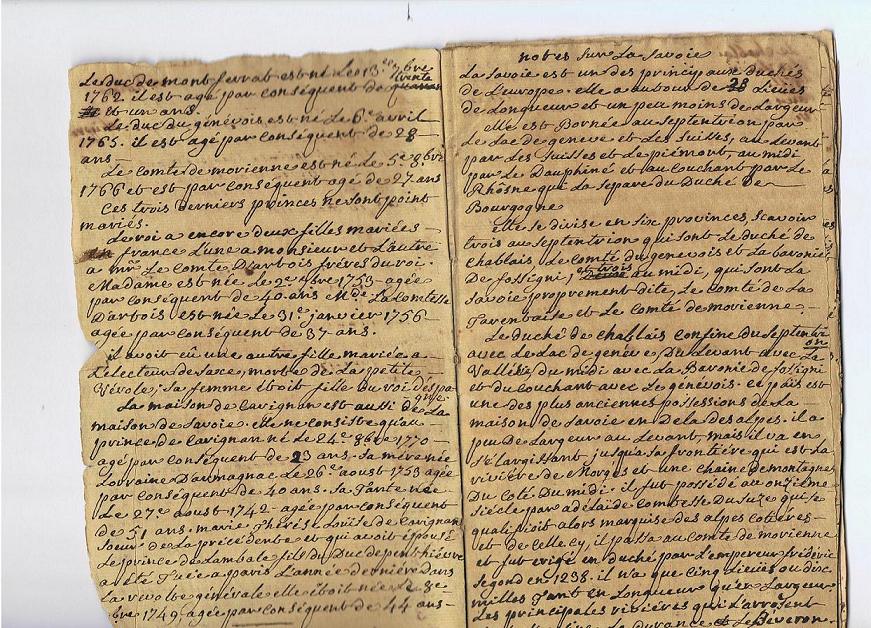 Le duc de montferrat est né Le 13.e 7bre
1762. il est agé par conséquent de trente
et un ans.
Le duc du génévois est né Le 6.e avril
1765. il est agé par conséquent de 28
ans
Le comte de morienne est né Le 5.e 8bre
1766 et est par conséquent agé de 27 ans
Ces trois derniers princes ne sont point
mariés.
Le roi a encore deux filles mariées
en france L'une a monsieur et L'autre
a mgr. Le comte D'artois fréres du roi.
Madame est née Le 2.e 7bre 1753 agée
par conséquent de 40 ans Mde. La comtesse
D'artois est née Le 31.e janvier 1756
agée par conséquent de 37 ans.
il avoit eû une autre fille mariée a
L'électeur de saxe, morte de La petite
Vérole; sa femme étoit fille du roi d'espa
gne.
La maison de Carignan est aussi de La
maison de Savoie. elle ne consiste qu'au
prince de Carignan né Le 24.e 8bre 1770
agé par conséquent de 23 ans. sa mére née
Lorraine D'armagnac Le 26.e aoust 1753 agée
par conséquent de 40 ans. sa Tante née
Le 27.e aoust 1742 agée par conséquent
de 51 ans. marie Thérése Louise de Carignan
soeur de La précédente et qui avoit épousé
Le prince de Lambale fils du Duc de penthiévre
a été Tuée a paris L'année derniére dans
La révolte générale elle étoit née Le 8e
bre 1749, agée par conséquent de 44 ans
notes sur La Savoie
La Savoie est un des principaux duchés
de L'europe. elle a autour de 28 Lieües
de Longueur et un peu moins de Largeur
elle est Bornée au septentrion par
Le Lac de genéve et Les suisses, au Levant
par Les suisses et Le piémont, au midi
par Le Dauphiné et au couchant par Le
Rhône qui La separe du Duché de
Bourgogne
elle se divise en six provinces scavoir
trois au septentrion qui sont Le duché de
chablais Le comté du genevois et La baronie
De fossigni, et trois au midi, qui sont La
Savoie proprement dite, Le comté de La
Tarentaise et Le comté de morienne.
Le duché de chablais confine du septentri
on
avec Le Lac de genéve, Du Levant avec La
Vallais, du midi avec La Baronie de fossigni
et du couchant avec Le génévois. ce païs est
une des plus anciennes possessions de La
maison de Savoie en Dela des alpes. il a
peu De Largeur au Levant, mais il va en
s'élargissant jusqu'a sa frontiére qui est La
riviére de Morges et une chaine de montagnes
Du Coté Du midi. il fut possédé au onziéme
siécle par adélaide comtesse Du suze qui se
qualifioit alors marquise des alpes cotiéres
et de celle cy, il passa au comte de morienne
et fut erigé en duché par L'empereur fréderic
segond en 1238. il n'a que cinq Lieües ou dix
milles Tant en Longueur qu'en Largeur
Les principales riviéres qui L'arrosent
La Durance et Le Beveron.